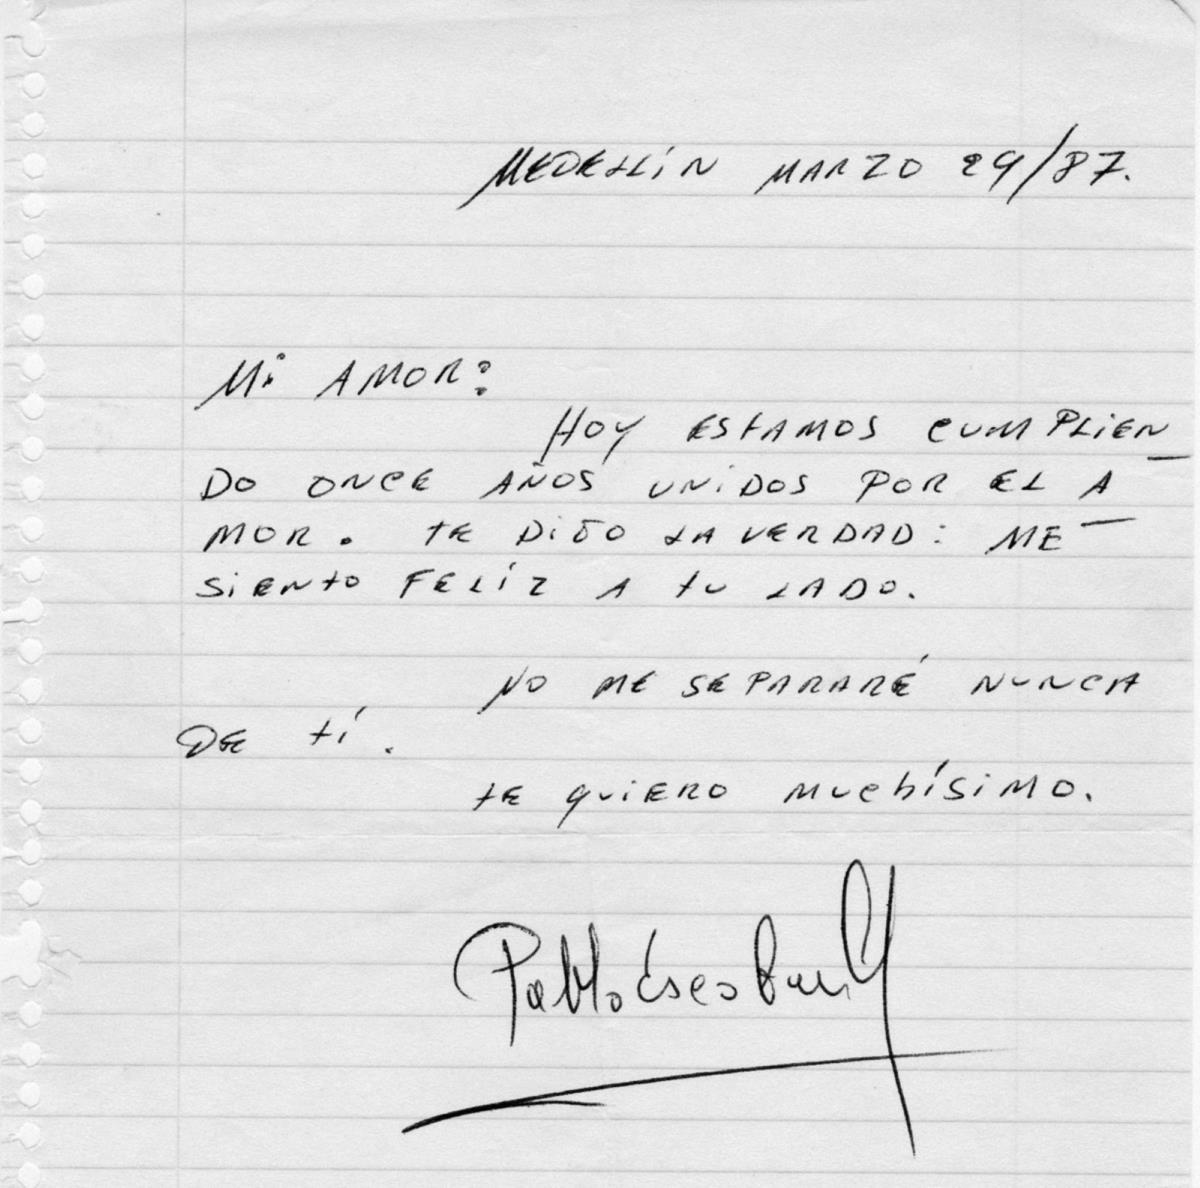 MEDELLÍN MARZO 29/87.
Mi AMOR:
HOY ESTAMOS CUMPLIEN
DO ONCE AÑOS UNiDOS POR EL A
MOR. TE DiGO LA VERDAD: ME
SiENTO FELÍZ A TU LADO.
NO ME SEPARARÉ NUNCA
DE TÍ.
TE QUIERO MUCHÍSiMO.
Pablo Escobar G